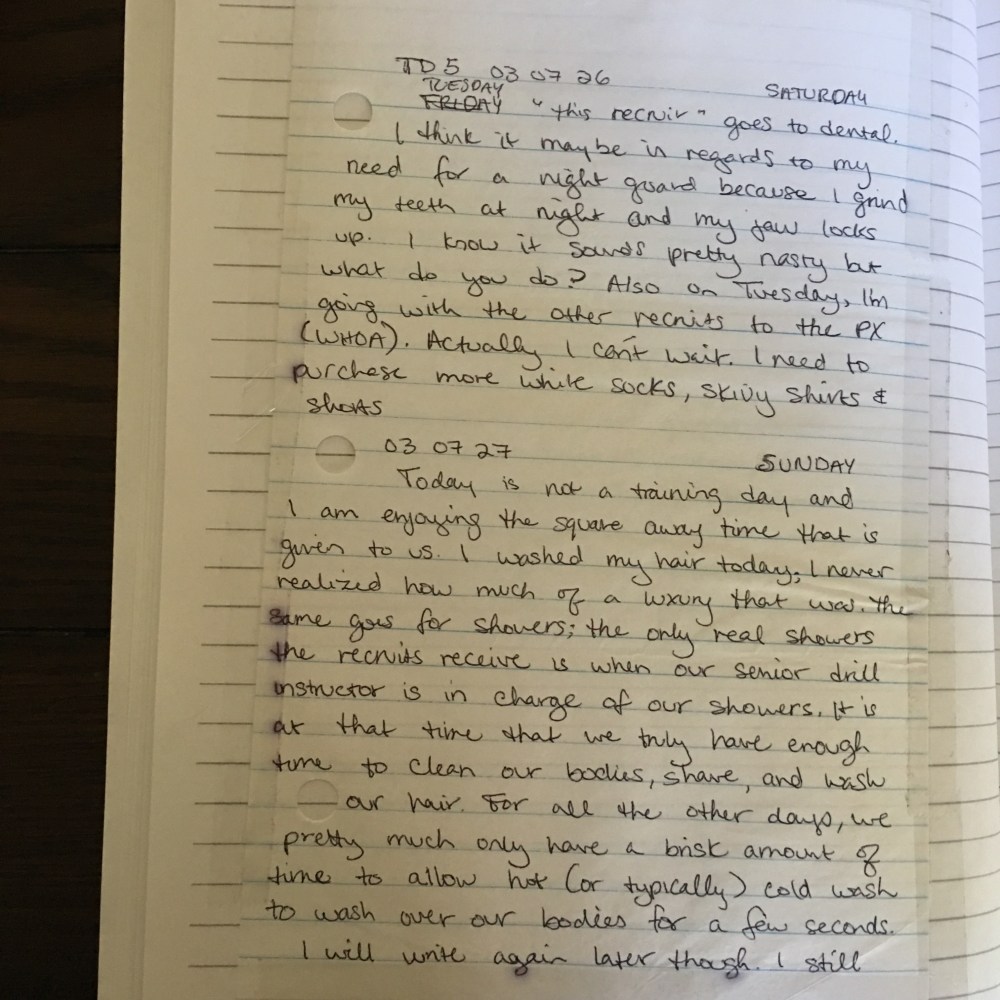 TD 5 03 07 26 SATURDAY
TUESDAY
FRIDAY "this recruit" goes to dental.
I think it maybe in regards to my
need for a night guard because I grind
my teeth at night and my jaw locks
up. I know it sounds pretty nasty but
what do you do? Also on Tuesday, I'm
going with the other recruits to the PX
(WHOA). Actually I can't wait. I need to
purchase more white socks, skivy shirts &
shorts
03 07 27 SUNDAY
Today is not a training day and
I am enjoying the square away time that is
given to us. I washed my hair today; I never
realized how much of a luxury that was. The
same goes for showers; the only real showers
the recruits receive is when our senior drill
instructor is in charge of our showers. It is
at that time that we truly have enough
time to clean our bodies, shave, and wash
our hair. For all the other days, we
pretty much only have a brisk amount of
time to allow hot (or typically) cold wash
to wash over our bodies for a few seconds.
I will write again later though. I still